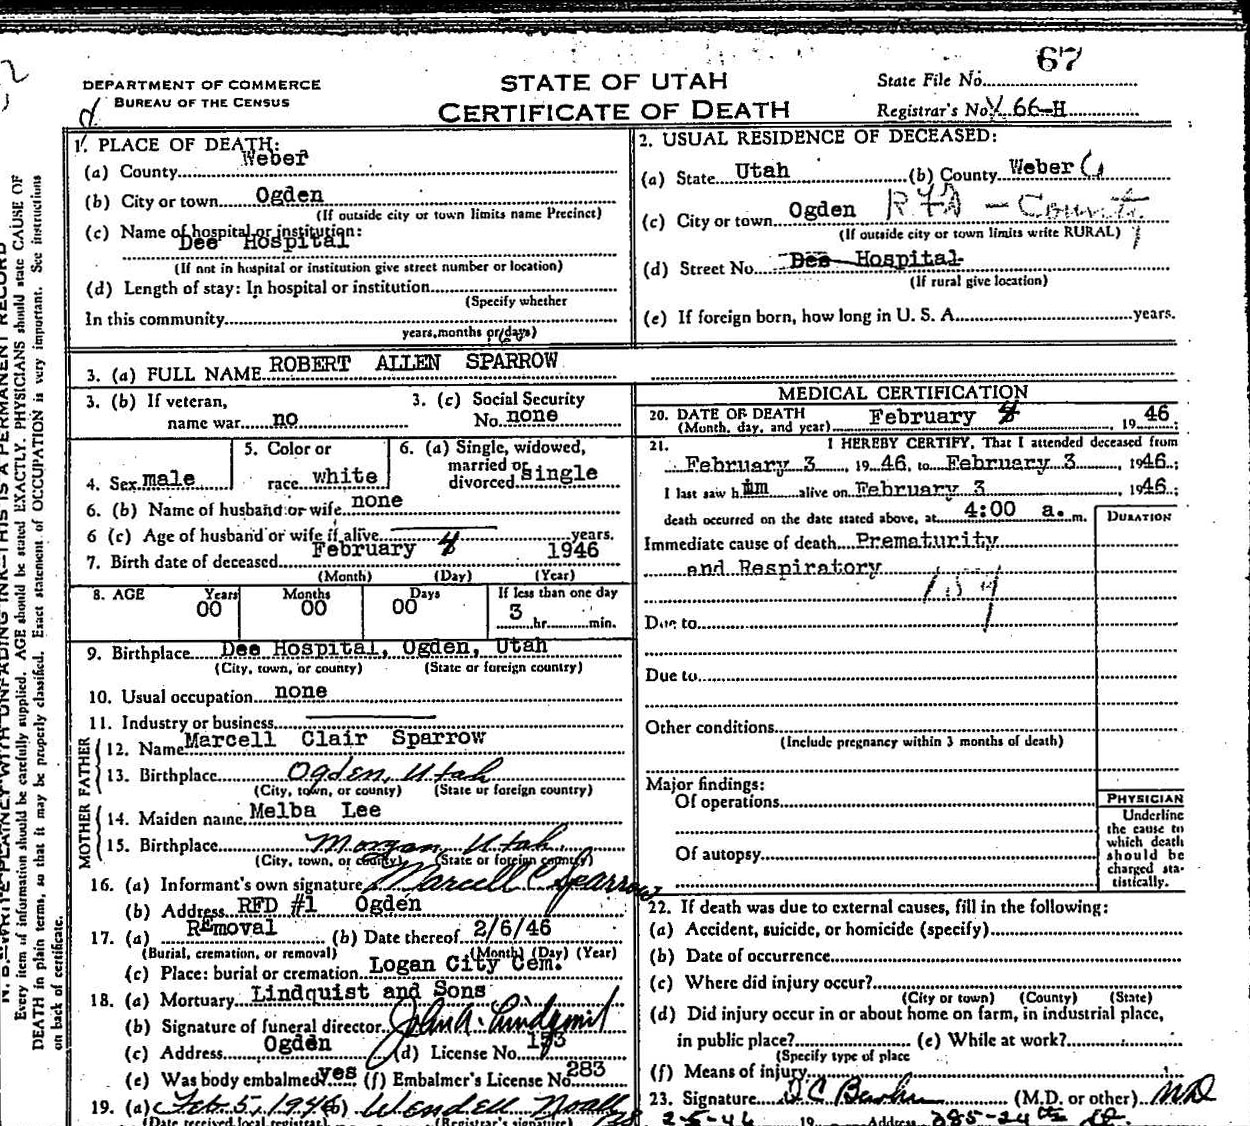 67
DEPARTMENT OF COMMERCE
BUREAU OF THE CENSUS
STATE OF UTAH
CERTIFICATE OF DEATH
State File No.
Registrar's No. 66-H
1. PLACE OF DEATH:
(a) County Weber
(b) City or town Ogden
(If outside city or town limits name Precinct)
(c) Name of hospital or institution:
Dee Hospital
(If not in hospital or institution give street number or location)
(d) Length of stay: In hospital or institution
(Specify whether
In this community
years, months or days)
2. USUAL RESIDENCE OF DECEASED:
(a) State Utah (b) County Weber
(c) City or town Ogden RFD - County
(If outside city or town limits write RURAL)
(d) Street No. Dee Hospital
(If rural give location)
(e) If foreign born, how long in U. S. A. years.
3. (a) FULL NAME ROBERT ALLEN SPARROW
3. (b) If veteran,
name war no
3. (c) Social Security
No. none
4. Sex male
5. Color or
race white
6. (a) Single, widowed,
married or
divorced single
6. (b) Name of husband or wife none
6 (c) Age of husband or wife if alive years.
7. Birth date of deceased February 4 1946
(Month) (Day) (Year)
8. AGE Years Months Days If less than one day
00 00 00 3 hr. min.
9. Birthplace Dee Hospital, Ogden, Utah
(City, town, or county) (State or foreign country)
10. Usual occupation none
11. Industry or business
FATHER
12. Name Marcell Clair Sparrow
13. Birthplace Ogden, Utah
(City, town, or county) (State or foreign country)
MOTHER
14. Maiden name Melba Lee
15. Birthplace Morgan, Utah
(City, town, or county) (State or foreign country)
16. (a) Informant's own signature Marcell C Sparrow
(b) Address RFD #1 Ogden
17. (a) Removal (b) Date thereof 2/6/46
(Burial, cremation, or removal) (Month) (Day) (Year)
(c) Place: burial or cremation Logan City Cem.
18. (a) Mortuary Lindquist and Sons
(b) Signature of funeral director John A. Lindquist
(c) Address Ogden (d) License No. 173
(e) Was body embalmed? yes (f) Embalmer's License No. 283
19. (a) Feb 5, 1946 (b) Wendell Noall
(Date received local registrar) (Registrar's signature)
MEDICAL CERTIFICATION
20. DATE OF DEATH February 4, 1946
(Month, day, and year)
21. I HEREBY CERTIFY, That I attended deceased from
February 3, 1946, to February 3, 1946;
I last saw him alive on February 3, 1946;
death occurred on the date stated above, at 4:00 a. m.
DURATION
Immediate cause of death Prematurity
and Respiratory
159
Due to
Due to
Other conditions
(Include pregnancy within 3 months of death)
Major findings:
Of operations
Of autopsy
PHYSICIAN
Underline
the cause to
which death
should be
charged sta-
tistically.
22. If death was due to external causes, fill in the following:
(a) Accident, suicide, or homicide (specify)
(b) Date of occurrence
(c) Where did injury occur?
(City or town) (County) (State)
(d) Did injury occur in or about home on farm, in industrial place,
in public place? (e) While at work?
(Specify type of place
(f) Means of injury
23. Signature (M.D. or other) MD
2-5-46 19 Address 385-24th St.
N. B.—WRITE PLAINLY WITH UNFADING INK—THIS IS A PERMANENT RECORD
Every item of information should be carefully supplied. AGE should be stated EXACTLY. PHYSICIANS should state CAUSE OF
DEATH in plain terms, so that it may be properly classified. Exact statement of OCCUPATION is very important. See instructions
on back of certificate.